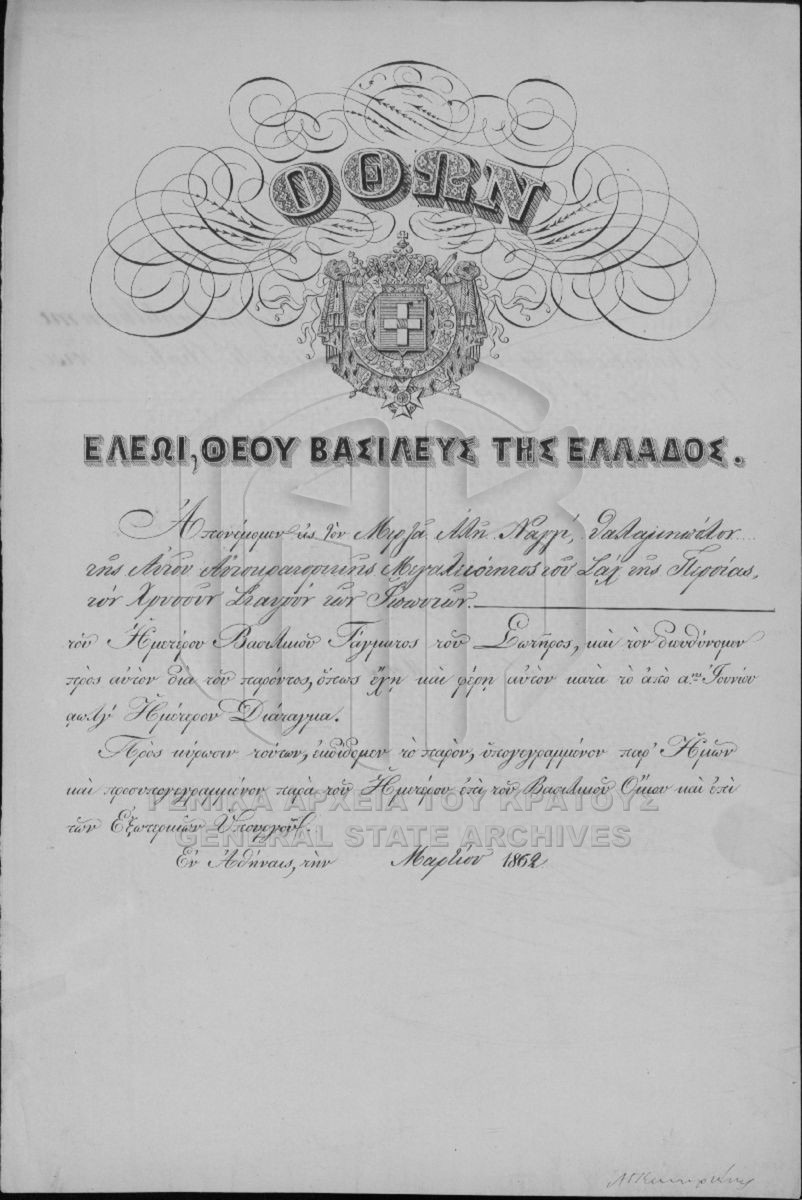 ΟΘΩΝ
ΕΛΕΩι, ΘΕΟΥ ΒΑΣΙΛΕΥΣ ΤΗΣ ΕΛΛΑΔΟΣ.
Ἀπονέμομεν εἰς τὸν Μιρζᾶ Ἀλῆ Ναγγί, θαλαμηπόλον
τῆς Αὐτοῦ Αὐτοκρατορικῆς Μεγαλειότητος τοῦ Σὰχ τῆς Περσίας,
τὸν Χρυσοῦν Σταυρὸν τῶν Ἱπποτῶν
τοῦ Ἡμετέρου Βασιλικοῦ Τάγματος τοῦ Σωτῆρος, καὶ τὸν διευθύνομεν
πρὸς αὐτὸν διὰ τοῦ παρόντος, ὅπως ἔχῃ καὶ φέρῃ αὐτὸν κατὰ τὸ ἀπὸ α.ης Ἰουνίου
αωλγʹ Ἡμέτερον Διάταγμα.
Πρὸς κύρωσιν τούτων, ἐκδίδομεν τὸ παρὸν, ὑπογεγραμμένον παρ' Ἡμῶν
καὶ προσυπογεγραμμένον παρὰ τοῦ Ἡμετέρου ἐπὶ τοῦ Βασιλικοῦ Οἴκου καὶ ἐπὶ
τῶν Ἐξωτερικῶν Ὑπουργοῦ.
Ἐν Ἀθήναις, τὴν Μαρτίου 1862
ΓΕΝΙΚΑ ΑΡΧΕΙΑ ΤΟΥ ΚΡΑΤΟΥΣ
GENERAL STATE ARCHIVES